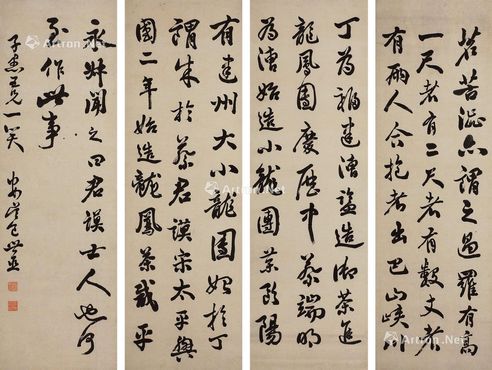 茗苦澁亦謂之過羅有高
一尺者有二尺者有數丈者
有兩人合抱者出巴山峽川
丁為福建漕監造御茶進
龍鳳團慶歷中蔡端明
為漕始造小龍團茶歐陽
有建州大小龍團始於丁
謂成於蔡君謨宋太平興
國二年始造龍鳳茶咸平
永叔聞之曰君謨士人也何
至作此事
兄一笑 安吳包世臣
Artron.Net